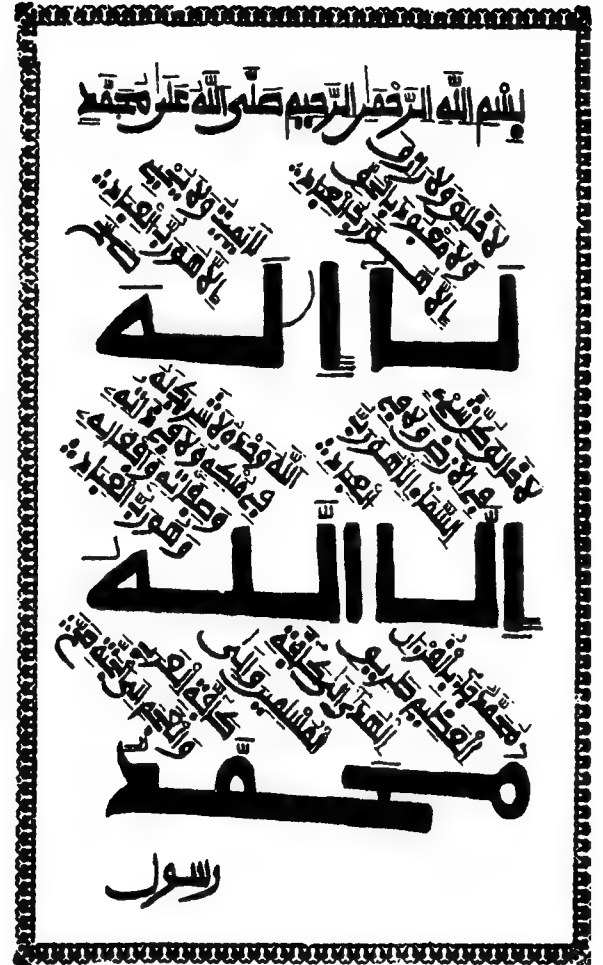 بِسْمِ اللَّهِ الرَّحْمَٰنِ الرَّحِيمِ صَلَّى اللَّهُ عَلَىٰ مُحَمَّدٍ
لا خالق ولا رازق
ولا معبود بالحق
إلا هو رب العباد
لا يميت ولا يحيي
إلا هو رب العباد
لا إله
لا خالق كل شيء
في الأرض ولا في
السماء إلا هو رب
العباد
الله وحده لا شريك له
في ملكه ولا في ذاته
وصفاته وأفعاله
وهو رب العباد
إلا الله
محمد جاء بالقرآن
العظيم طريق
الهدى إلى كافة
المسلمين وإلى
كافة العرب
والعجم إلى الجنة
محمد
رسول